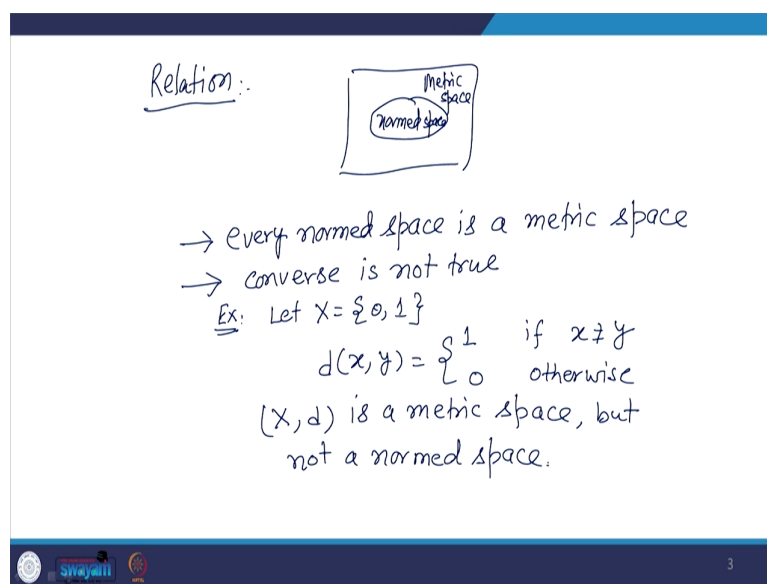 Relation :-
Metric
space
normed space
→ every normed space is a metric space
→ converse is not true
Ex: Let X = {0, 1}
d(x, y) = { 1 if x ≠ y
0 otherwise
(X, d) is a metric space, but
not a normed space.
swayam
3